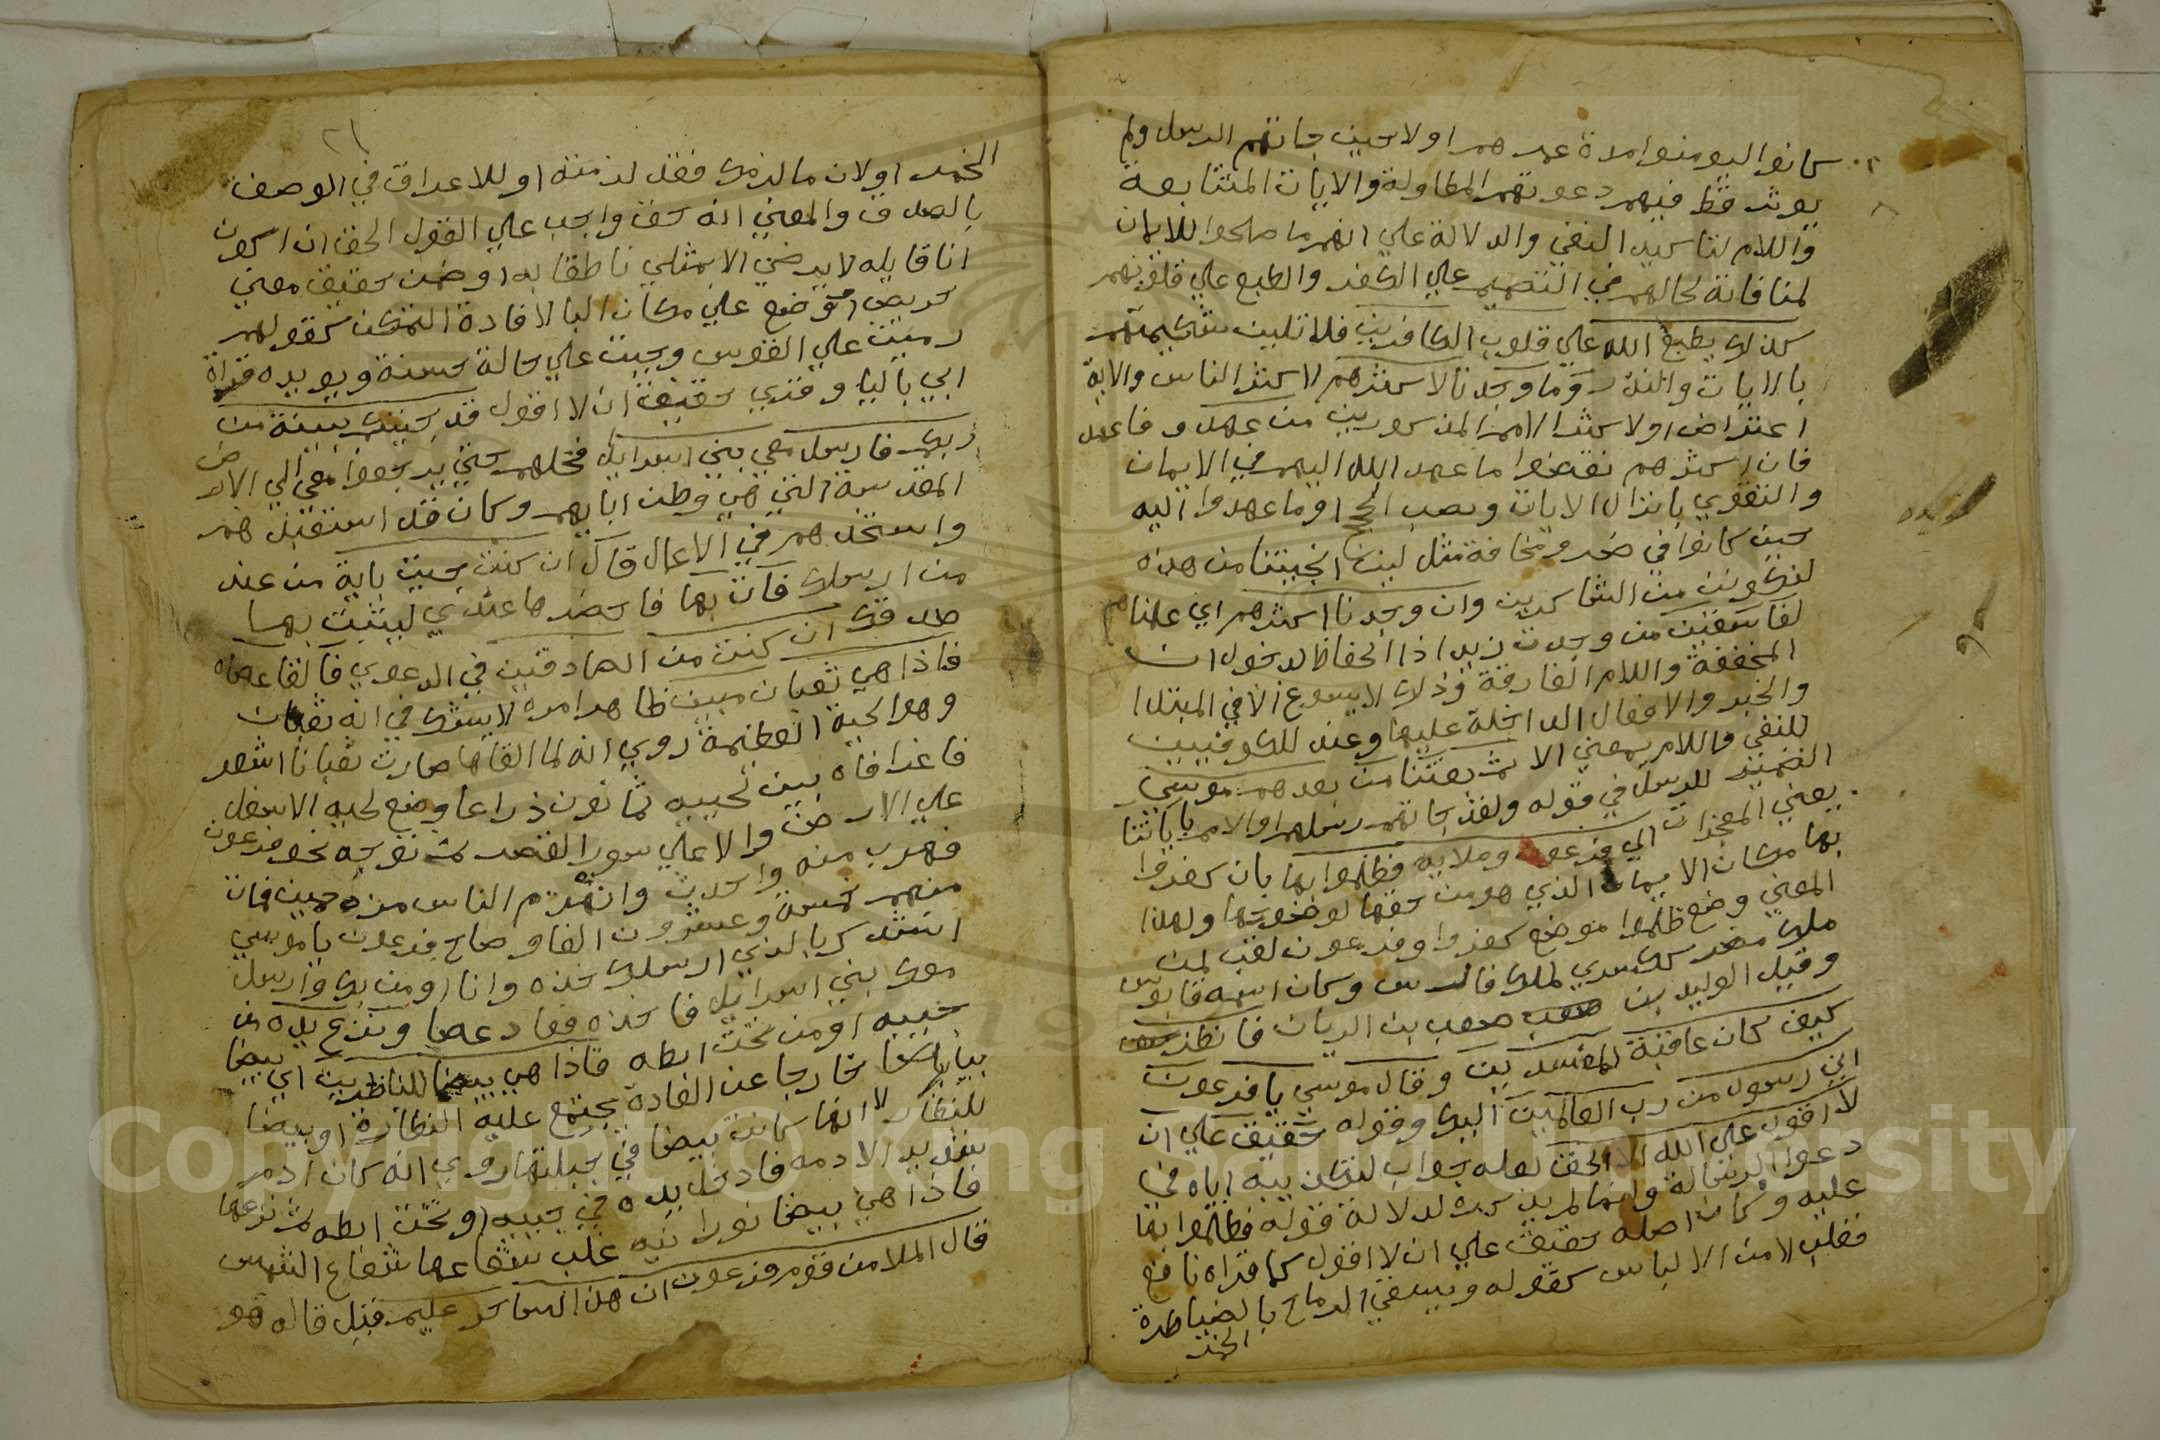 كانوا ليومنوا مدة عمرهم اولا حين جاتهم الرسل ولم
يوثر قط فيهم دعوتهم المطاولة والايات المتتابعة
واللام لتاكيد النفي والدلالة علي انهم ما صلحوا للايمان
لمنافاته لحالهم في التصميم علي الكفر والطبع علي قلوبهم
كذلك يطبع الله علي قلوب الكافرين فلا تلين شكيمتهم
بالايات والنذر وما وجدنا لاكثرهم لاكثر الناس والاية
اعتراض اولاكثر الامم المذكورين من عهد وفا عهد
فان اكثرهم نقضوا ما عهد الله اليهم في الايمان
والتقوي بانزال الايات ونصب الحجج او ما عهدوا اليه
حين كانوا في ضر ومخافة مثل لين انجيتنا من هذه
لنكونن من الشاكرين وان وجدنا اكثرهم اي علمناهم
لفاسقين من وجدت زيدا ذا الحفاظ لدخول ان
المخففة واللام الفارقة وذلك لا يسوغ الا في المبتدا
والخبر والافعال الداخلة عليهما وعند الكوفيين
للنفي واللام بمعني الا ثم بعثنا من بعدهم موسي
الضمير للرسل في قوله ولقد جاتهم رسلهم او الامم باياتنا
يعني المعجزات الي فرعون وملايه فظلموا بها بان كفروا
بها مكان الايمان الذي هو من حقها لوضوحها ولهذا
المعني وضع ظلموا موضع كفروا وفرعون لقب لمن
ملك مصر ككسري لملك فارس وكان اسمه قابوس
وقيل الوليد بن مصعب بن الريان فانظر
كيف كان عاقبة المفسدين وقال موسي يا فرعون
اني رسول من رب العالمين اليك وقوله حقيق علي ان
لا اقول علي الله الا الحق لعله جواب لتكذيبه اياه في
دعوا الرسالة وانما لم يذكره لدلالة قوله فظلموا بها
عليه وكان اصله حقيق علي ان لا اقول كما قراه نافع
فقلب لامن الالباس كقوله وتشقي الرماح بالضياطرة
الحمر
٢١
الحمر اولان ما لزمك فقد لزمته او للاغراق في الوصف
بالصدق والمعني انه حق واجب علي القول الحق ان اكون
انا قايله لا يرضي الا بمثلي ناطقا به او ضمن حقيق معني
حريص او وضع علي مكان البا لافادة التمكن كقولهم
رميت علي القوس وجيت علي حالة حسنة ويويده قراة
ابي باليا وقري حقيق ان لا اقول قد جيتكم ببينة من
ربكم فارسل معي بني اسرايل فخلهم حتي يرجعوا معي الي الارض
المقدسة التي هي وطن ابايهم وكان قد استعبدهم
واستخدمهم في الاعمال قال ان كنت جيت باية من عند
من ارسلك فات بها فاحضرها عندي ليثبت بها
صدقك ان كنت من الصادقين في الدعوي فالقا عصاه
فاذا هي ثعبان مبين ظاهر امره لا يشك في انه ثعبان
وهو الحية العظيمة روي انه لما القاها صارت ثعبانا اشعر
فاغرا فاه بين لحييه ثمانون ذراعا وضع لحيه الاسفل
علي الارض والاعلي سور القصر ثم توجه نحو فرعون
فهرب منه واحدث وانهزم الناس مزدحمين فمات
منهم خمسة وعشرون الفا وصاح فرعون يا موسي
انشدك بالذي ارسلك خذه وانا اومن بك وارسل
معك بني اسرايل فاخذه فعاد عصا ونزع يده من
جيبه او من تحت ابطه فاذا هي بيضا للناظرين اي بيضا
بياضا خارجا عن العادة يجتمع عليه النظارة او بيضا
للنظار لا انها كانت بيضا في جبلتها روي انه كان ادم
شديد الادمه فادخل يده في جيبه او تحت ابطه ثم نزعها
فاذا هي بيضا نورانيه غلب شعاعها شعاع الشمس
قال الملا من قوم فرعون ان هذا لساحر عليم قيل قاله هو
Copyright © King Saud University